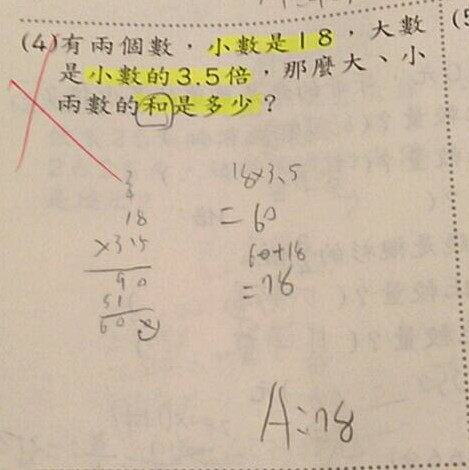 (4)有兩個數，小數是18，大數
是小數的3.5倍，那麼大、小
兩數的和是多少？
18×3.5
=60
60+18
=78
18
×3.5
90
A:78